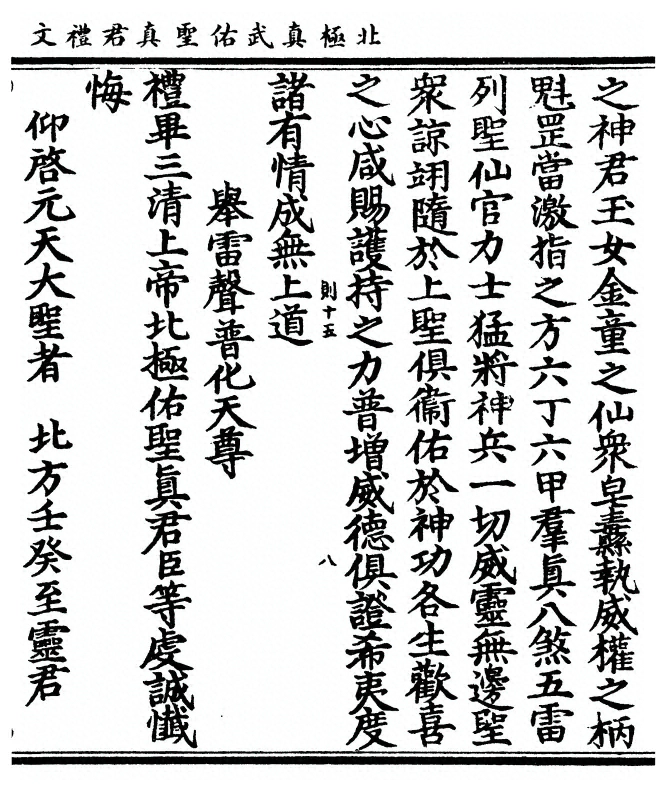 北極真武佑聖真君禮文
之神君玉女金童之仙衆皁纛執威權之柄
魁罡當激指之方六丁六甲羣眞八煞五雷
列聖仙官力士猛將神兵一切威靈無邊聖
衆諒翊隨於上聖俱衞佑於神功各生歡喜
之心咸賜護持之力普增威德俱證希夷度
諸有情成無上道
則十五
八
舉雷聲普化天尊
禮畢三清上帝北極佑聖眞君臣等虔誠懺
悔
仰啓元天大聖者 北方壬癸至靈君